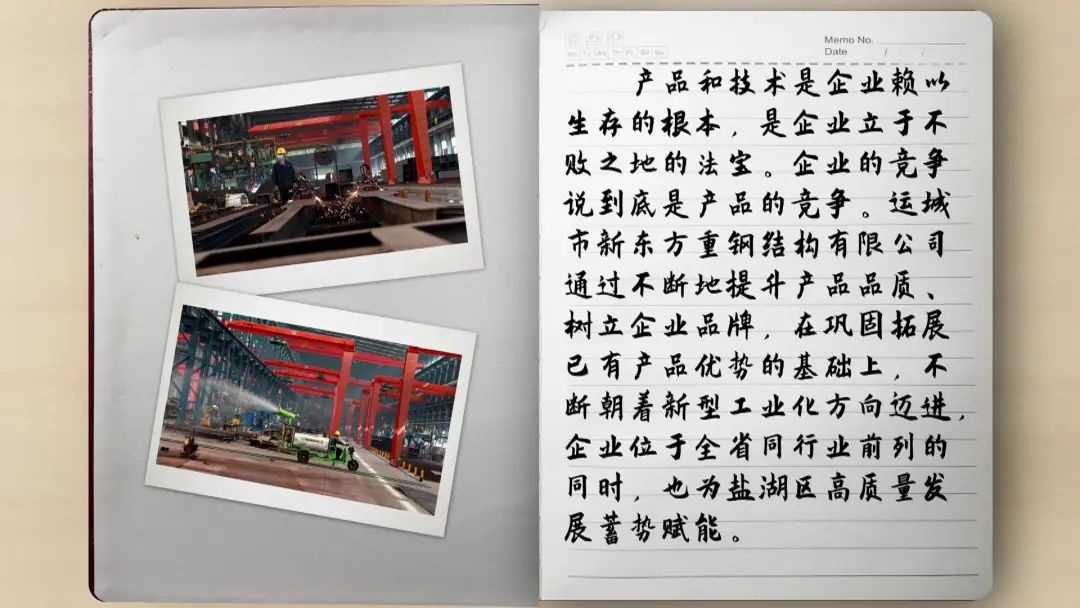 Memo No.
Date / /
产品和技术是企业赖以
生存的根本，是企业立于不
败之地的法宝。企业的竞争
说到底是产品的竞争。运城
市新东方重钢结构有限公司
通过不断地提升产品品质、
树立企业品牌，在巩固拓展
已有产品优势的基础上，不
断朝着新型工业化方向迈进，
企业位于全省同行业前列的
同时，也为盐湖区高质量发
展蓄势赋能。